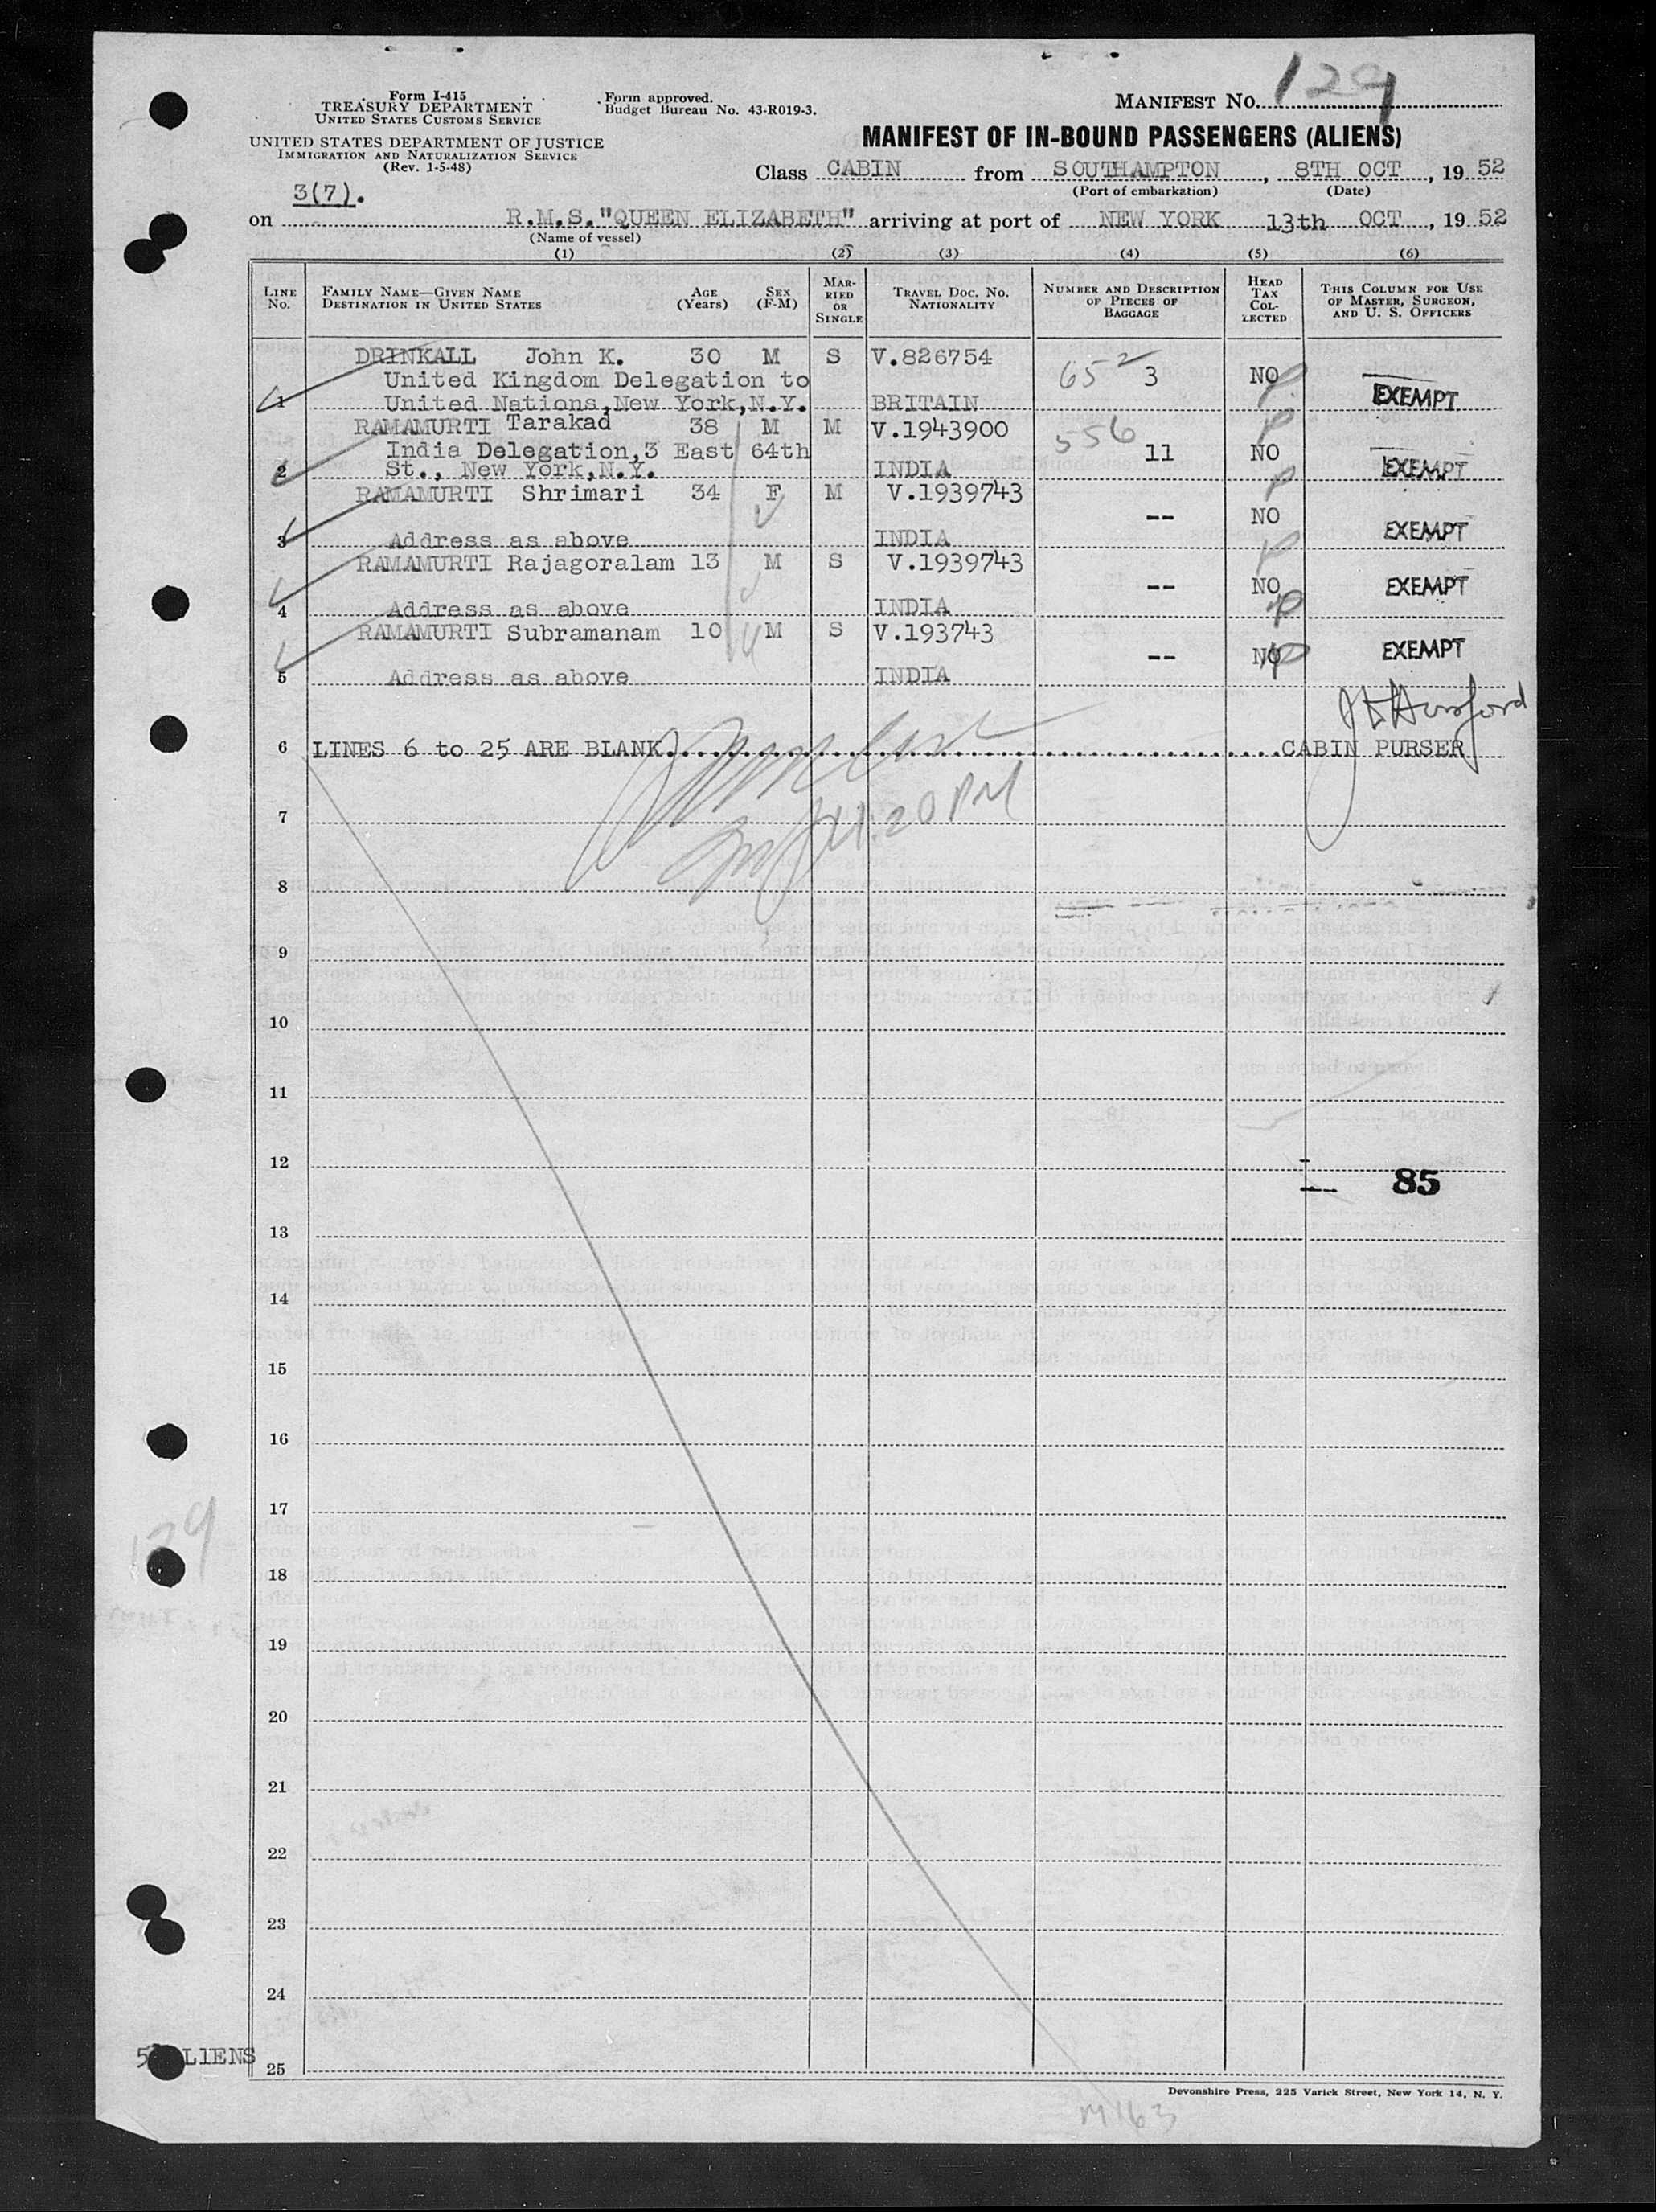 Form I-415
TREASURY DEPARTMENT
UNITED STATES CUSTOMS SERVICE
UNITED STATES DEPARTMENT OF JUSTICE
IMMIGRATION AND NATURALIZATION SERVICE
(Rev. 1-5-48)
Form approved.
Budget Bureau No. 43-R019-3.
MANIFEST NO. 129
MANIFEST OF IN-BOUND PASSENGERS (ALIENS)
Class CABIN from SOUTHAMPTON, 8TH OCT, 1952
(Port of embarkation) (Date)
3(7).
on R.M.S."QUEEN ELIZABETH" arriving at port of NEW YORK 13th OCT, 1952
(Name of vessel)
(1) (2) (3) (4) (5) (6)
LINE NO. FAMILY NAME—GIVEN NAME DESTINATION IN UNITED STATES AGE (Years) SEX (F-M) MARRIED OR SINGLE TRAVEL DOC. NO. NATIONALITY NUMBER AND DESCRIPTION OF PIECES OF BAGGAGE HEAD TAX COLLECTED THIS COLUMN FOR USE OF MASTER, SURGEON, AND U. S. OFFICERS
DRINKALL John K. 30 M S V.826754
United Kingdom Delegation to 652 3 NO EXEMPT
1 United Nations,New York,N.Y. BRITAIN
RAMAMURTI Tarakad 38 M M V.1943900
India Delegation,3 East 64th 556 11 NO EXEMPT
2 St., New York,N.Y. INDIA
RAMAMURTI Shrimari 34 F M V.1939743
-- NO EXEMPT
3 Address as above INDIA
RAMAMURTI Rajagoralam 13 M S V.1939743
-- NO EXEMPT
4 Address as above INDIA
RAMAMURTI Subramanam 10 M S V.193743
-- NO EXEMPT
5 Address as above INDIA
6 LINES 6 to 25 ARE BLANK. CABIN PURSER
:20 PM
7
8
9
10
11
12
85
13
14
15
16
17
129
18
19
20
21
22
23
24
25
LIENS
Devonshire Press, 225 Varick Street, New York 14, N. Y.
M163